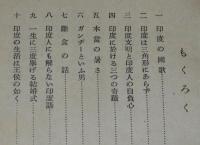 もくろく
一 印度の國歌
二 印度は三角形にあらず
三 印度文明と印度人の自負心
四 印度に於ける三つの奇蹟
五 本當の暑さ
六 ガンヂーといふ男
七 鍍金の話
八 印度人にも解らない印度語
九 一生に三度擧げる結婚式
十 印度の生活は王侯の如く